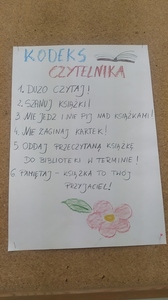 KODEKS
CZYTELNIKA
1. DUŻO CZYTAJ!
2. SZANUJ KSIĄŻKI!
3. NIE JEDZ I NIE PIJ NAD KSIĄŻKAMI!
4. NIE ZAGINAJ KARTEK!
5. ODDAJ PRZECZYTANĄ KSIĄŻKĘ
DO BIBLIOTEKI W TERMINIE!
6. PAMIĘTAJ - KSIĄŻKA TO TWÓJ
PRZYJACIEL!